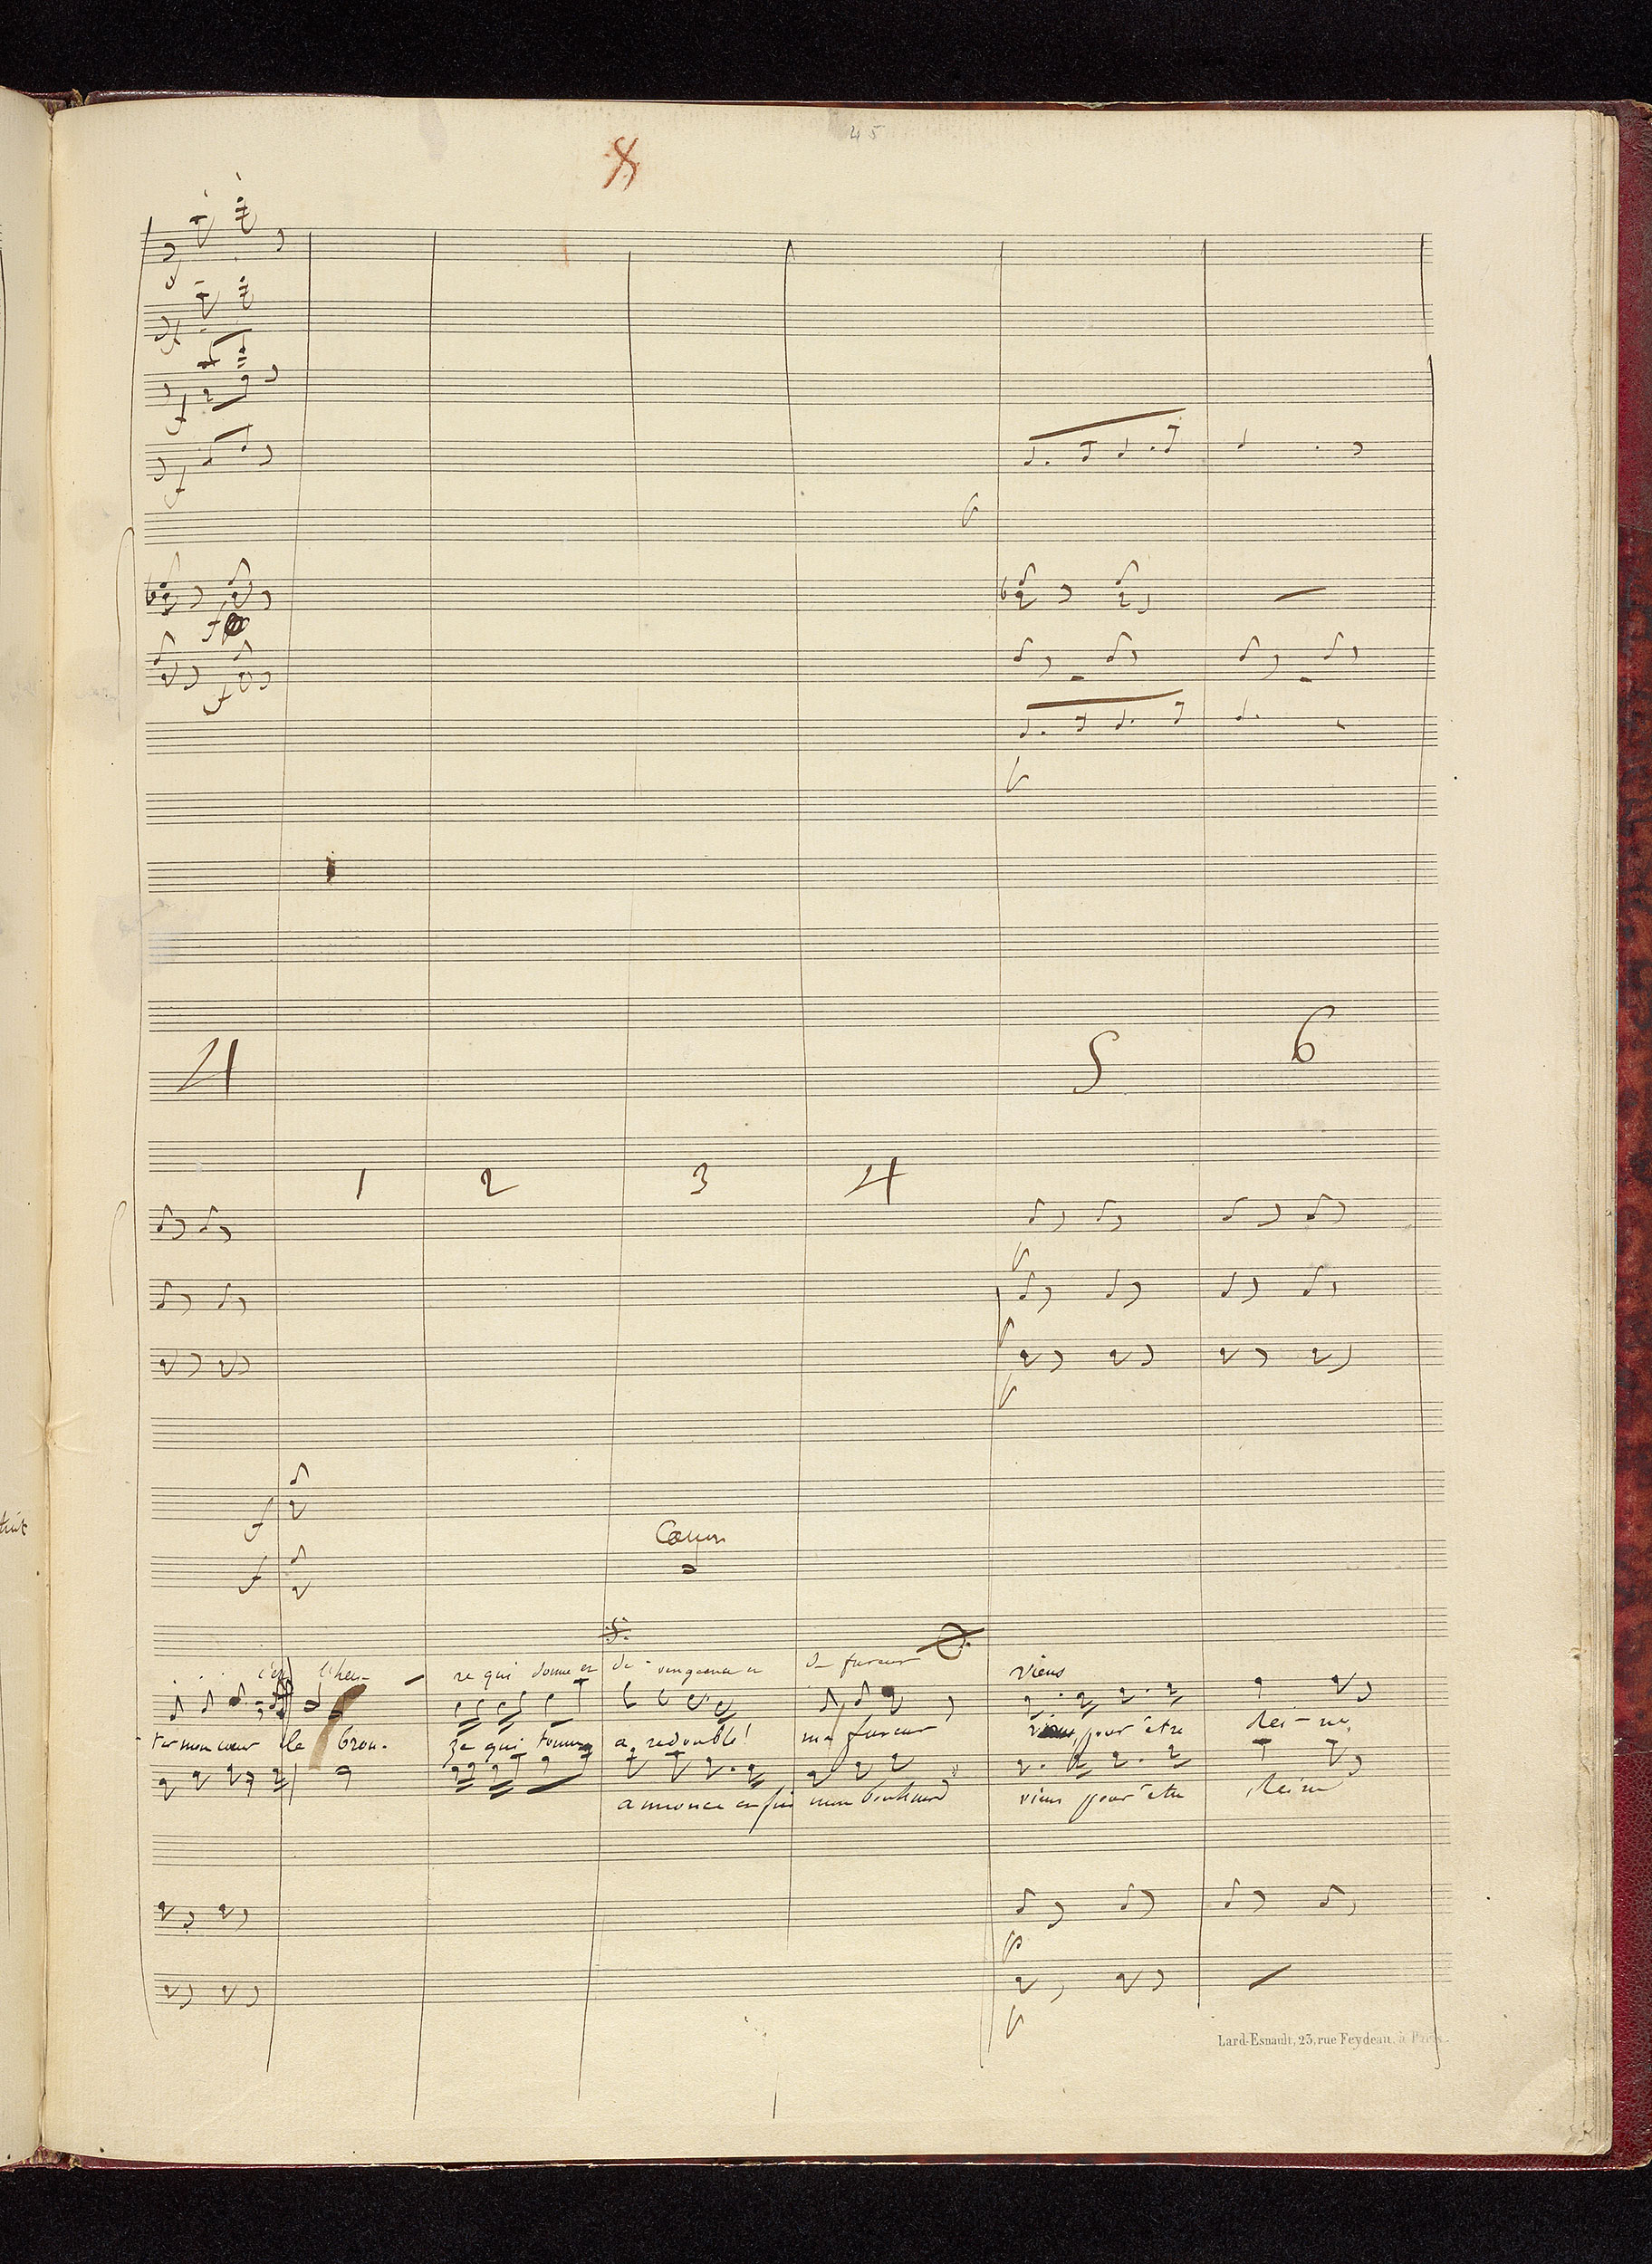 45
4 5 6
1 2 3 4
Canon
c'est l'heu- re qui sonne et de vengeance et de fureur viens
ter mon cœur le bron- ze qui tonne a redoublé! ma fureur pour être Rei-ne,
annonce enfin mon bonheur viens pour être Reine
Lard-Esnault, 23, rue Feydeau, à Paris.